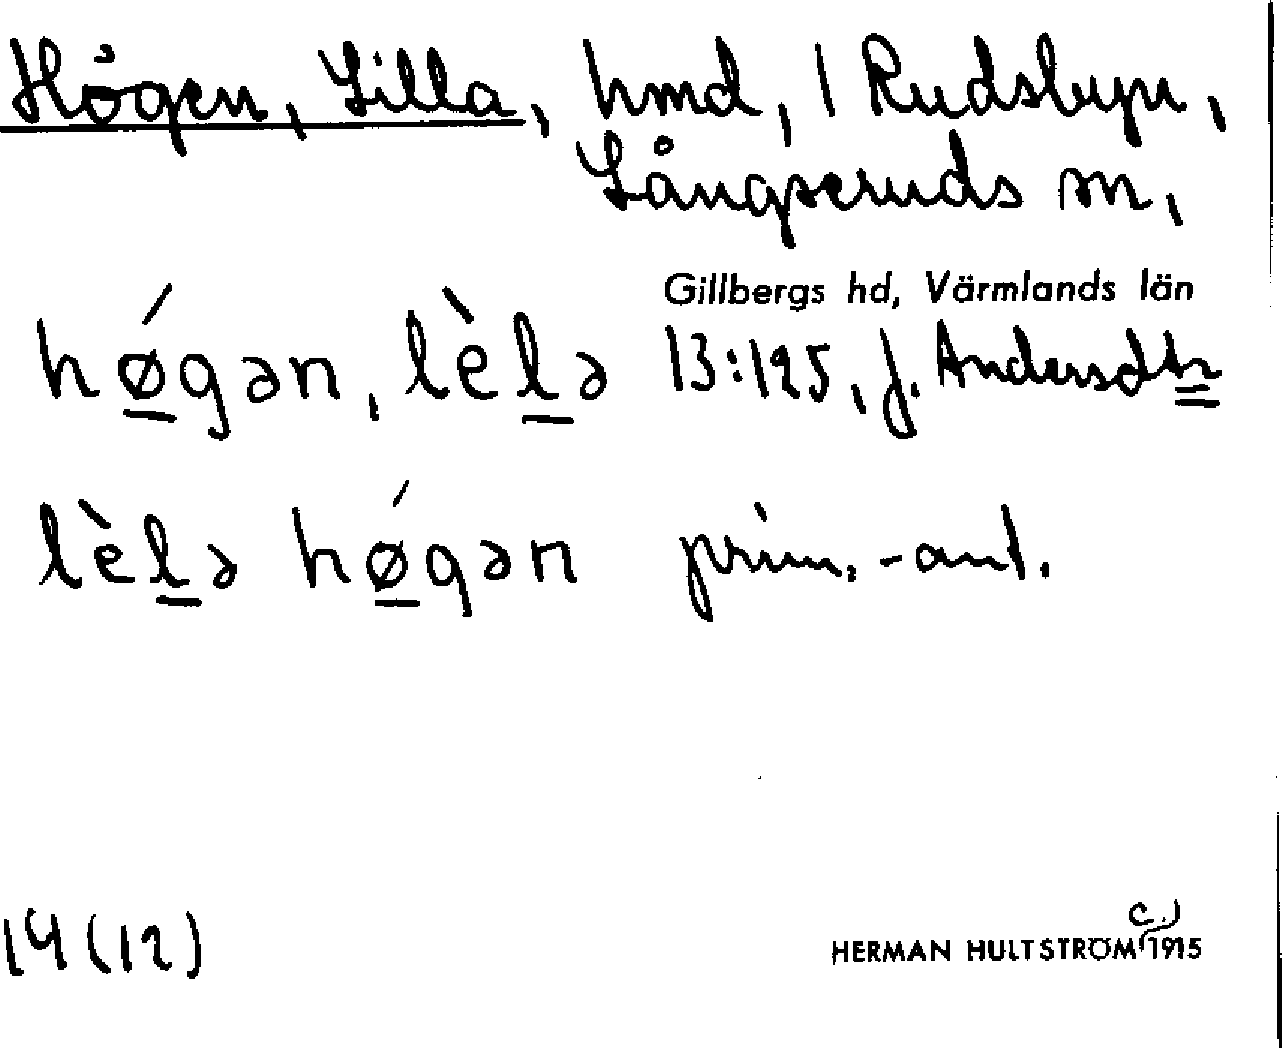 Högen, Lilla, hmd, 1 Rudsbyn,
Långseruds sn,
Gillbergs hd, Värmlands län
hǿgən, lèlə 13:125, J. Andersdtr
lèlə hǿgən prim.-ant.
14 (12)
HERMAN HULTSTRÖM (c.) 1915